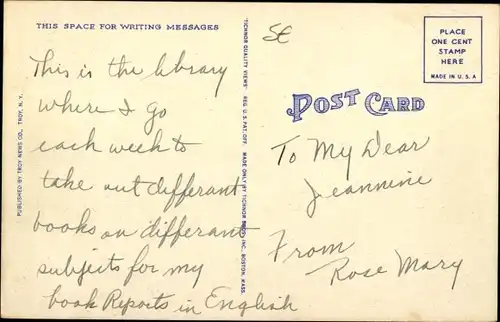 THIS SPACE FOR WRITING MESSAGES
This is the library
where I go
each week to
take out differant
books on differant
subjects for my
book Reports in English
PUBLISHED BY TROY NEWS CO., TROY, N.Y.
TICHNOR QUALITY VIEWS REG. U.S. PAT. OFF. MADE ONLY BY TICHNOR BROS. INC., BOSTON, MASS.
5¢
PLACE
ONE CENT
STAMP
HERE
MADE IN U.S.A
POST CARD
To My Dear
Jeannine
From
Rose Mary